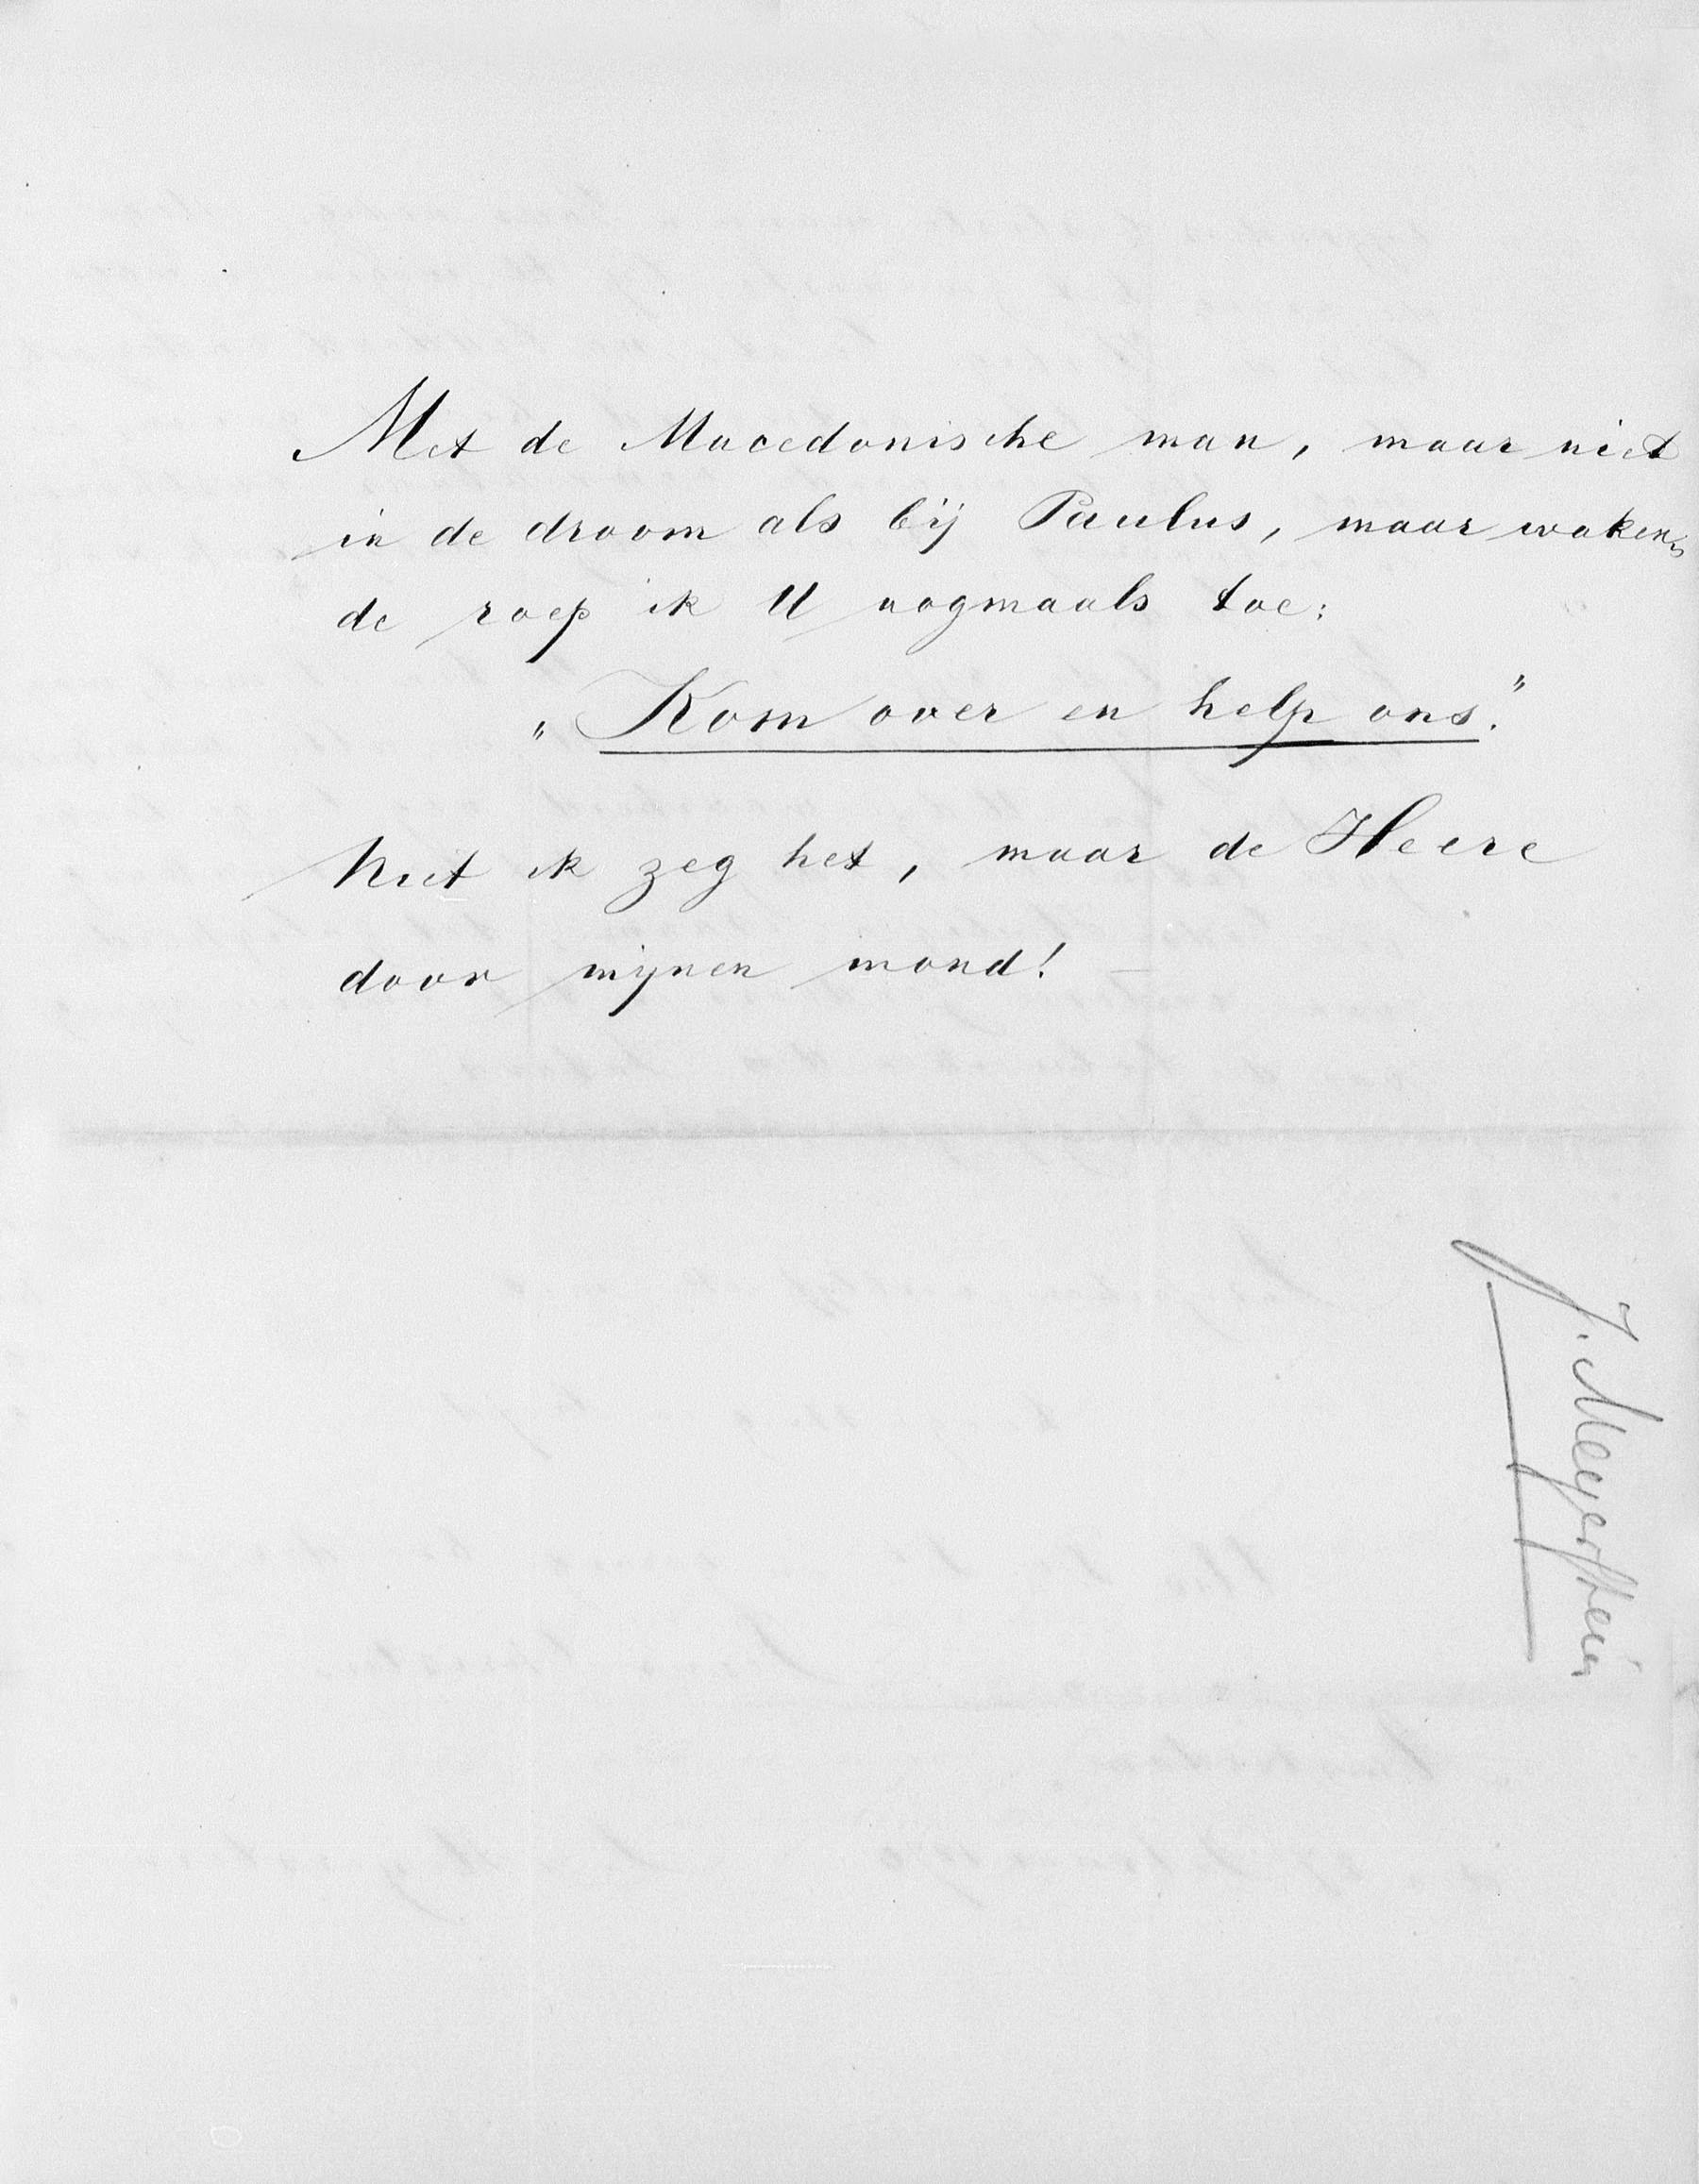 Met de Macedonische man, maar niet
in de droom als bij Paulus, maar waken=
de roep ik U nogmaals toe:
„Kom over en help ons."
Niet ik zeg het, maar de Heere
door mijnen mond!
J. Meyerstein